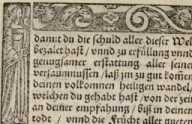 damit du die schuld aller diser Wel
bezalet hast / vnnd zu erfüllung vnnd
genugsamer erstattung aller seiner
versaumnussen / laß jm zu gut kom̃en
deinen volkomnen heiligen wandel,
welchen du gehabt hast / von der zeit
an deiner empfahung / biß in deinen
todt / vnnd die Frücht aller guten